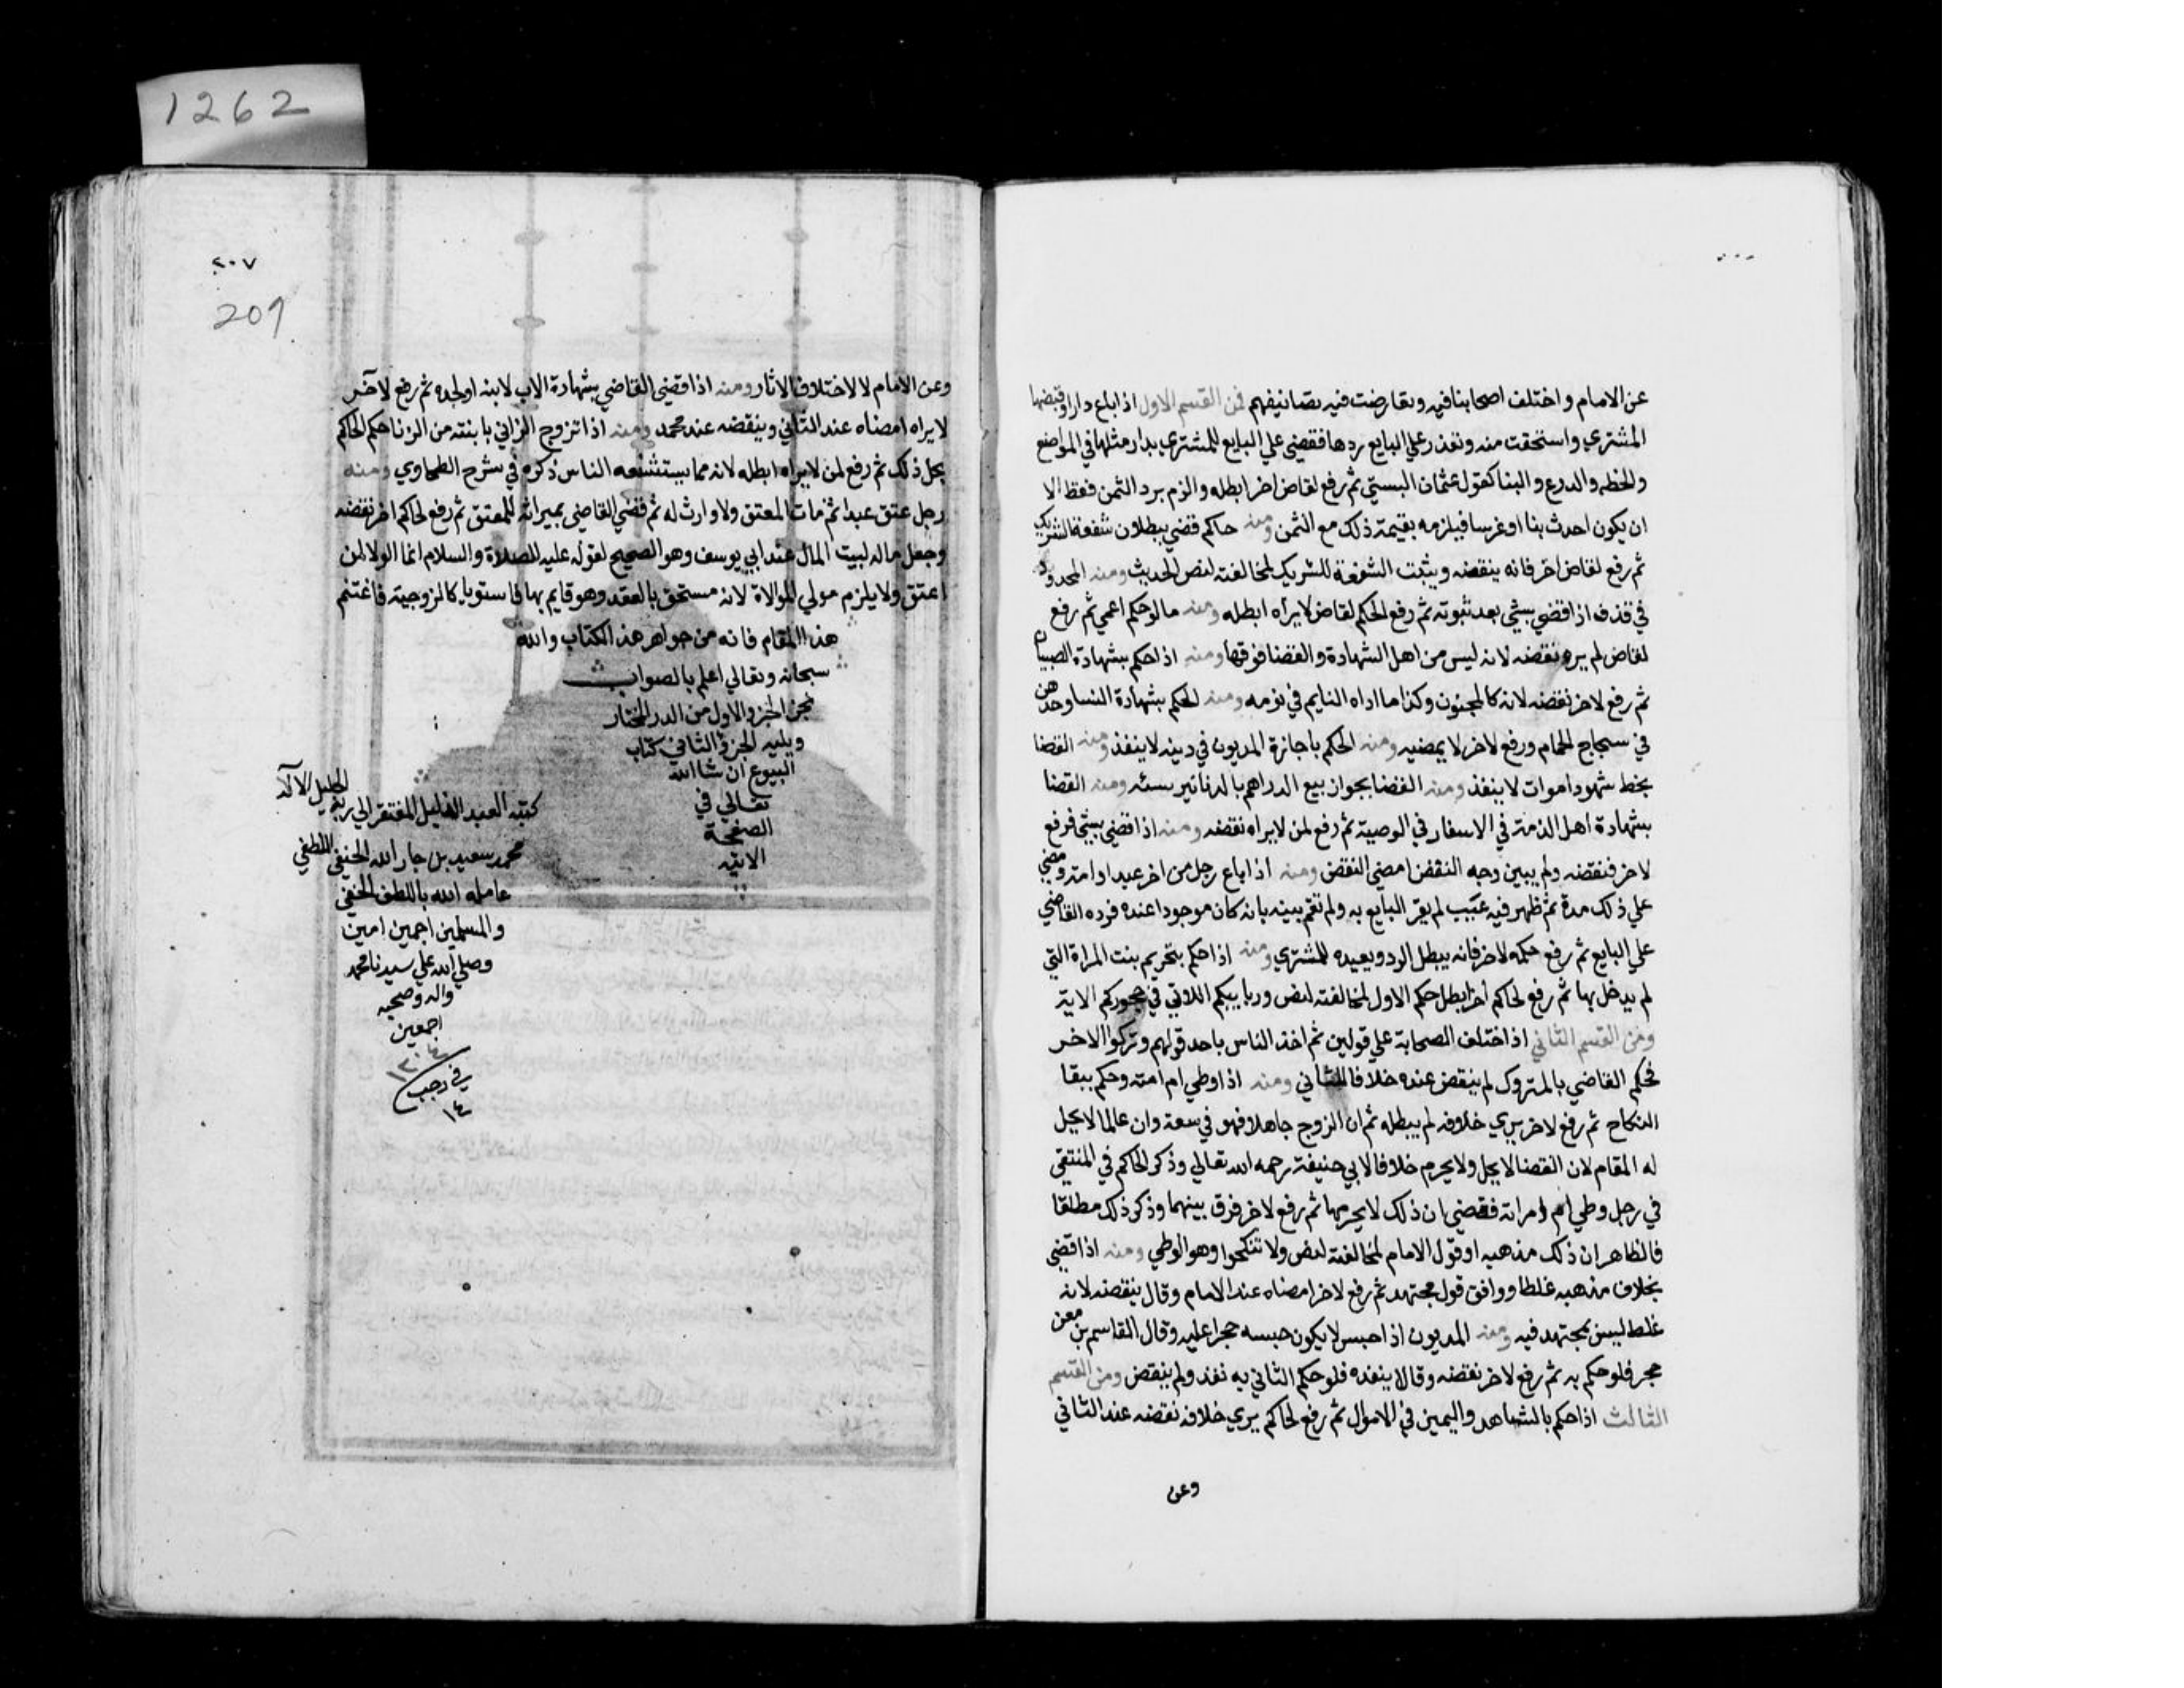 عن الامام واختلف اصحابنا فيه وتعارضت فيه تصانيفهم فمن القسم الاول اذا باع دارا وقبضها
المشتري واستحقت منه وتعذر علي البايع ردها فقضي علي البايع للمشتري بدار مثلها في المواضع
والخطه والدرع والبنا كقول عثمان البستي ثم رفع لقاض اخر ابطله والزم برد الثمن فقط الا
ان يكون احدث بنا او غرسا فيلزمه بقيمة ذلك مع الثمن ومنه حاكم قضي ببطلان شفعة الشريك
ثم رفع لقاض اخر فانه ينقضه ويثبت الشفعة للشريك لمخالفته لنص الحديث ومنه المحدود
في قذف اذا قضي بشي بعد ثبوته ثم رفع الحكم لقاض لا يراه ابطله ومنه ما لو حكم اعمي ثم رفع
لقاض لم يره نقضه لانه ليس من اهل الشهادة والقضا فوقها ومنه اذا حكم بشهادة الصبيان
ثم رفع لاخر نقضه لانه كالمجنون وكذا ما اداه النايم في نومه ومنه الحكم بشهادة النسا وحدهن
في سجاج الحمام ورفع لاخر لا يمضيه ومنه الحكم باجازة المديون في دينه لا ينفذ ومنه القضا
بخط شهود اموات لا ينفذ ومنه القضا بجواز بيع الدراهم بالدنانير نسئه ومنه القضا
بشهادة اهل الذمة في الاسفار في الوصية ثم رفع لمن لا يراه نقضه ومنه اذا قضي بشي فرفع
لاخر فنقضه ولم يبين وجه النقض امضي النقض ومنه اذا باع رجل من اخر عبدا او امة ومضي
علي ذلك مدة ثم ظهر فيه عيب لم يقر البايع به ولم تقم بينه بانه كان موجودا عنده فرده القاضي
علي البايع ثم رفع حكمه لاخر فانه يبطل الرد ويعيده للمشتري ومنه اذا حكم بتحريم بنت المراة التي
لم يدخل بها ثم رفع لحاكم اخر ابطل حكم الاول لمخالفته لنص وربايبكم اللاتي في حجوركم الاية
ومن القسم الثاني اذا اختلف الصحابة علي قولين ثم اخذ الناس باحد قولهم وتركوا الاخر
فحكم القاضي بالمتروك لم ينقض عنده خلافا للثاني ومنه اذا وطي ام امته وحكم ببقا
النكاح ثم رفع لاخر يري خلافه لم يبطله ثم ان الزوج جاهلا فهو في سعة وان عالما لا يحل
له المقام لان القضا لا يحل ولا يحرم خلافا لابي حنيفة رحمه الله تعالي وذكر الحاكم في المنتقي
في رجل وطي ام امراته فقضي بان ذلك لا يحرمها ثم رفع لاخر فرق بينهما وذكر ذلك مطلقا
فالظاهر ان ذلك مذهبه او قول الامام لمخالفته لنص ولا تنكحوا وهو الوطي ومنه اذا قضي
بخلاف مذهبه غلطا ووافق قول مجتهد ثم رفع لاخر امضاه عند الامام وقالا ينقضه لانه
غلط ليس بمجتهد فيه ومنه المديون اذا حبس لا يكون حبسه حجرا عليه وقال القاسم بن معن
حجر فلو حكم به ثم رفع لاخر نقضه وقالا ينفذه فلو حكم الثاني به نفذ ولم ينقض ومن القسم
الثالث اذا حكم بالشاهد واليمين في الاموال ثم رفع لحاكم يري خلافه نقضه عند الثاني
وعن
1262
٢٠٧
209
وعن الامام لا لاختلاف الاثار ومنه اذا قضي القاضي بشهادة الاب لابنه او لجده ثم رفع لآخر
لا يراه امضاه عند الثاني وينقضه عند محمد ومنه اذا تزوج الزاني بابنته من الزنا حكم الحاكم
بحل ذلك ثم رفع لمن لا يراه ابطله لانه مما يستشنعه الناس ذكره في شرح الطحاوي ومنه
رجل عتق عبدا ثم مات المعتق ولا وارث له ثم قضي القاضي بميراثه للمعتق ثم رفع لحاكم اخر نقضه
وجعل ماله لبيت المال عند ابي يوسف وهو الصحيح لقوله عليه الصلاة والسلام انما الولا لمن
اعتق ولا يلزم مولي الموالاة لانه مستحق بالعقد وهو قايم بهما فاستويا كالزوجية فاغتنم
هذا المقام فانه من جواهر هذا الكتاب والله
سبحانه وتعالي اعلم بالصواب
نجز الجزو الاول من الدر المختار
ويليه الجزؤ الثاني كتاب
البيوع ان شا الله
تعالي في
الصفحة
الاتيه
كتبه العبد الذليل المفتقر الي ربه الجليل الآله
محمد سعيد بن جار الله الحنفي اللطفي
عامله الله باللطف الخفي
والمسلمين اجمعين امين
وصلي الله علي سيدنا محمد
واله وصحبه
اجمعين
في رجب
١٤